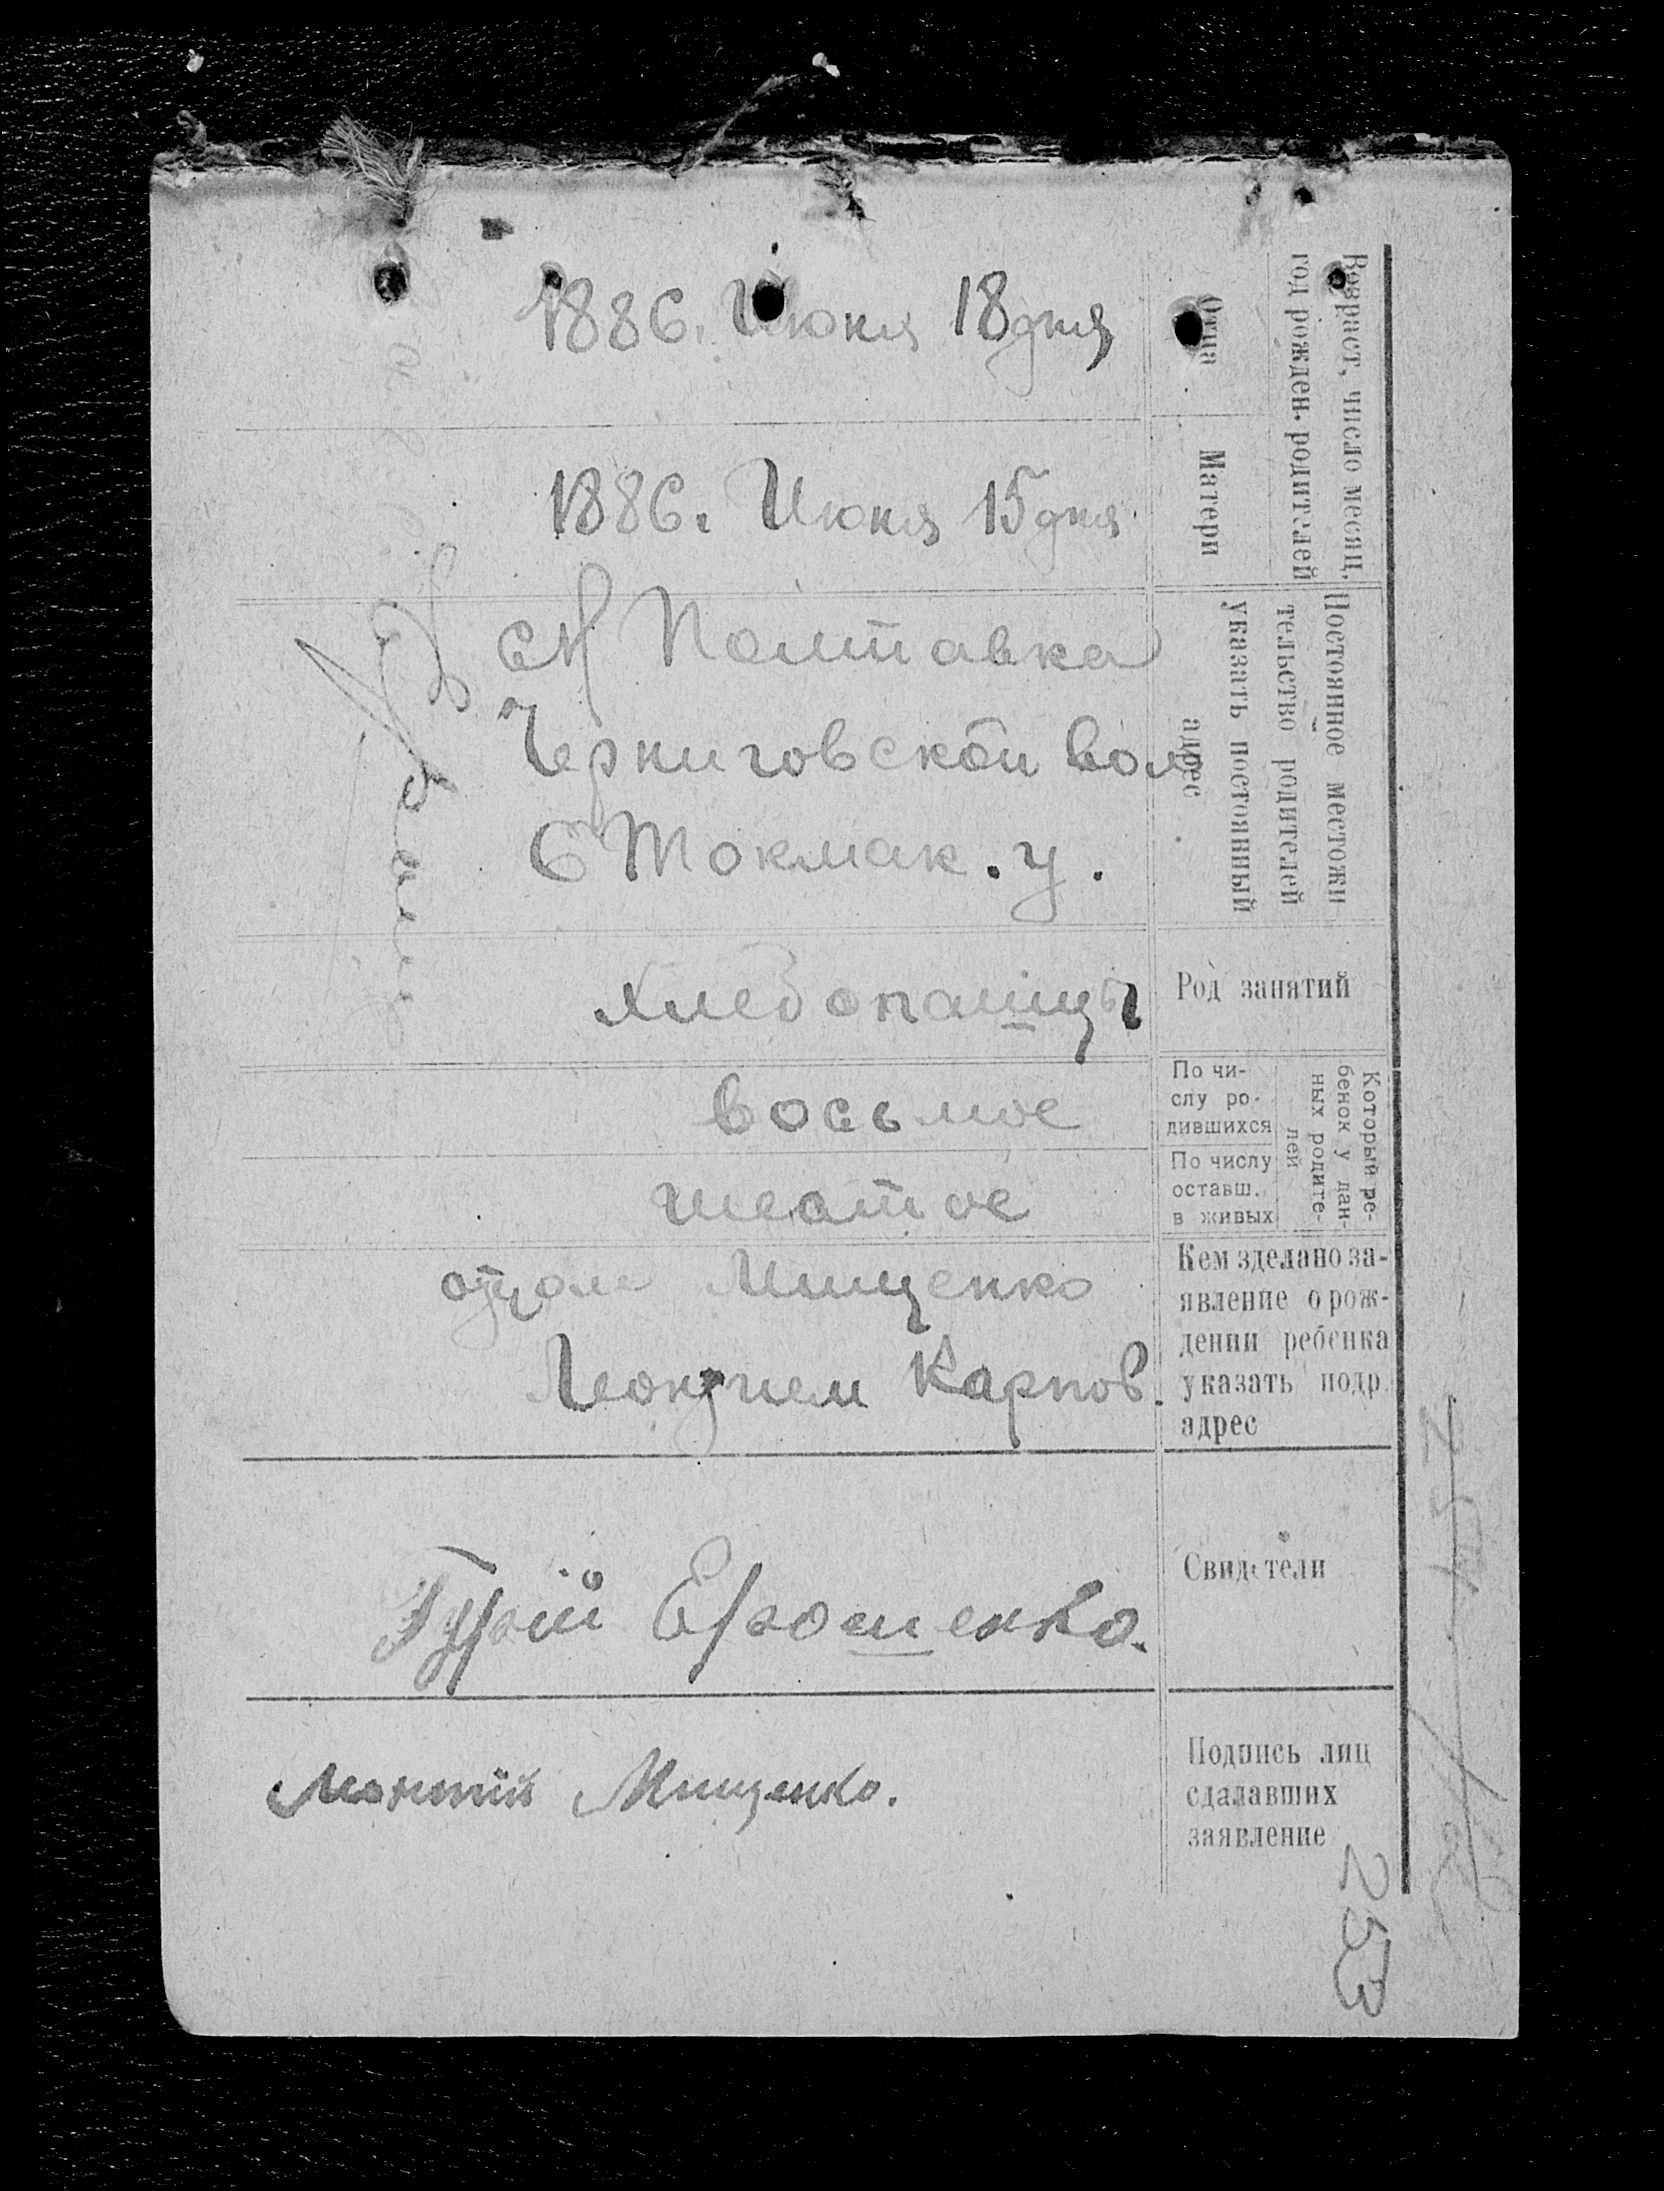 Возраст, число месяц,
год рожден. родителей
Отца
1886. Июня 18 дня
Матери
1886. Июня 15 дня
Постоянное местожи
тельство родителей
указать постоянный
адрес
Полтавка
Черниговской вол
Б Токмак. у.
Род занятий
хлебопашцы
Который ре-
бенок у дан-
ных родите-
лей
По чи-
слу ро-
дившихся
восьмое
По числу
оставш.
в живых
шестое
Кем зделано за-
явление о рож-
дении ребенка
указать подр.
адрес
отцом Мищенко
Леонтием Карпов.
Свидетели
Гурій Ерошенко.
Подпись лиц
сдалавших
заявление
Леонтій Мищенко.
253